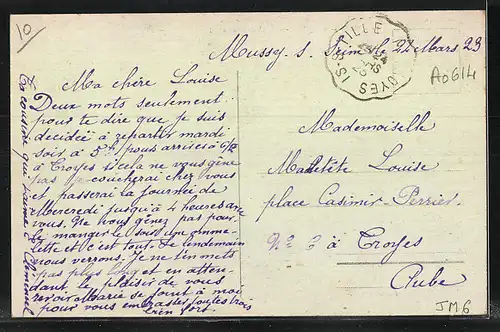 10
Mussy. s. Seine le 24 Mars 23
A0614
Ma chère Louise
Deux mots seulement
pour te dire que je suis
decideé à repartir mardi
soir à 5h pour arriver à
à Troyes si cela ne vous gêne
pas je coucherai chez vous
et passerai la journée de
Mercredi jusqu'à 4 heures avec
vous. Ne nous gênez pas pour
le manger le soir une omme-
lette et c'est tout. Le lendemain
nous verrons. Je ne t'en mets
pas plus long et en atten-
dant le plaisir de vous
revoir Marie se joint à moi
pour vous embrasser toutes trois
bien fort.
Ta cousine qui t'aime
Mademoiselle
Louise
place Casimir-Perrier
No 3 à Troyes
Aube
JM6